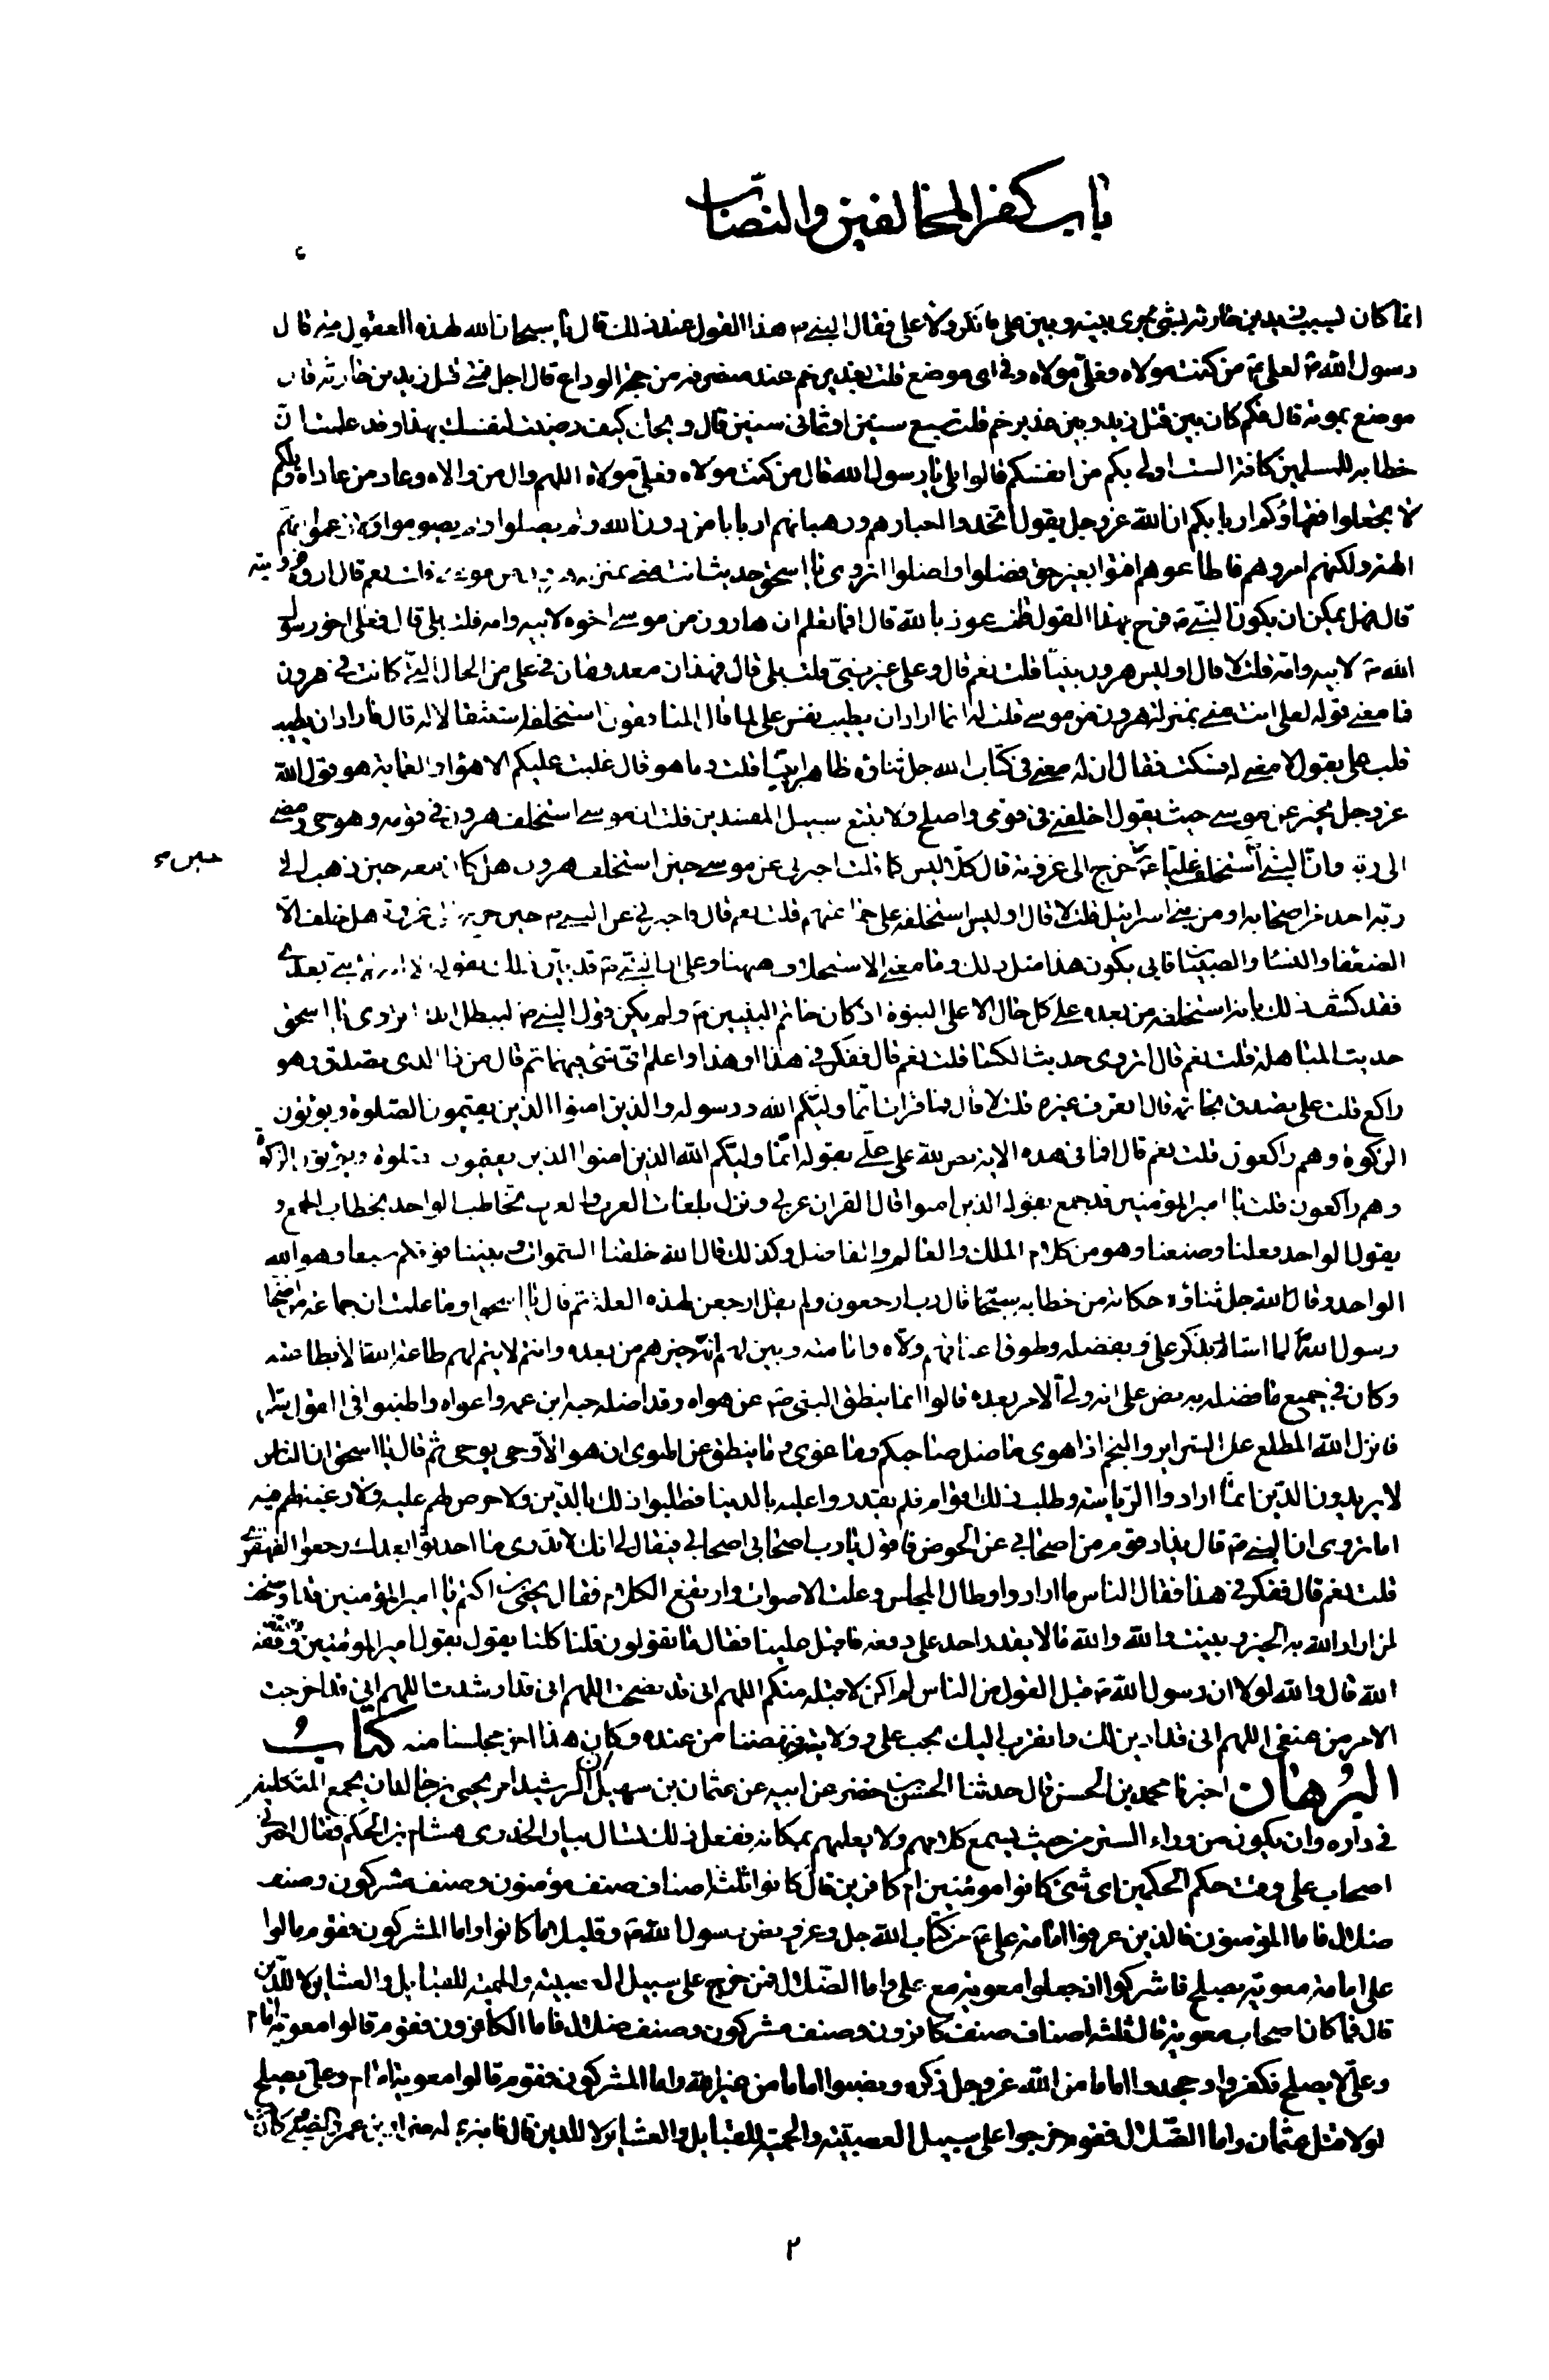 باب كفر المخالفين والنصّاب
انما كان لسبب زيد بن حارثه لشئ جرى بينه وبين على فانكر ولاء على فقال النبى ص هذا القول عند ذلك قال يا سبحان الله لهذه العقول متى قال
رسول الله ص لعلى ع من كنت مولاه فعلىّ مولاه وفى اى موضع قلت بغدير خم عند منصرفه من حجة الوداع قال اجل فمتى قتل زيد بن حارثه قلت
موضع بموته قال فكم كان بين قتل زيد وبين غدير خم قلت سبع سنين او ثمانى سنين قال ويحك كيف رضيت لنفسك بهذا وقد علمت ان
خطابه للمسلمين كافة الست اولى بكم من انفسكم قالوا بلى يا رسول الله قال من كنت مولاه فعلىّ مولاه اللهم وال من والاه وعاد من عاداه ويلكم
لا تجعلوا فقهاؤكم اربابكم ان الله عز وجل يقول اتخذوا احبارهم ورهبانهم اربابا من دون الله ولم يصلوا ولم يصوموا
ولكنهم امروهم فاطاعوهم افتوا بغير حق فضلوا واضلوا اتروى يا اسحق حديث انت منى بمنزلة هرون من موسى قلت نعم قال اروه
قال فهل يمكن ان يكون النبى ص مزح بهذا القول قلت اعوذ بالله قال افما تعلم ان هارون من موسى اخوه لابيه وامه قلت بلى قال فعلى اخو رسول
الله ص لابيه وامه قلت لا قال اوليس هرون نبيّا قلت نعم قال وعلى غير نبىّ قلت بلى قال فهذان معدومان فى على من الحال التى كانت فى هرون
فما معنى قوله لعلى انت منى بمنزلة هرون من موسى قلت له انما اراد ان يطيب نفس على لما قال المنافقون استخلفه استثقالا له قال فاراد ان يطيب
قلب على بقول لا معنى له فسكت فقال ان له معنى فى كتاب الله جل ثناؤه ظاهرا بيّنا قلت وما هو قال غلبت عليكم الاهواء والعماية هو قول الله
عز وجل يخبر عن موسى حيث يقول اخلفنى فى قومى واصلح ولا تتبع سبيل المفسدين قلت ان موسى استخلف هرون فى قومه وهو حى ومضى
الى ربه وان النبى ص استخلف عليا ع حين خرج الى غزوته قال كلا ليس كما قلت اخبرنى عن موسى حين استخلف هرون هل كان معه حين ذهب الى
ربّه احد من اصحابه او من بنى اسرائيل قلت لا قال اوليس استخلفه على جماعتهم قلت نعم قال واخبرنى عن النبى ص حين خرج الى غزوته هل خلف الا
الضعفاء والنساء والصبيان فانى يكون هذا مثل ذلك وما معنى الاستخلاف ههنا
فقد كشف ذلك بانه استخلفه من بعده على كل حال الا على النبوة اذ كان خاتم النبيين ص ولم يكن قول النبى ص ليبطل ابدا اتروى يا اسحق
حديث المباهلة قلت نعم قال اتروى حديث الكساء قلت نعم قال ففكر فى هذا او هذا واعلم اىّ شئ فيهما ثم قال من ذا الذى تصدق وهو
راكع قلت على تصدق بخاتمه قال تعرف غيره قلت لا قال فما قرات انما وليكم الله ورسوله والذين امنوا الذين يقيمون الصلوة ويؤتون
الزكوة وهم راكعون قلت نعم قال افما فى هذه الاية نص الله على علىّ بقوله انما وليكم الله الذين امنوا الذين يقيمون الصلوة ويؤتون الزكوة
وهم راكعون قلت يا امير المؤمنين قد جمع بقوله الذين امنوا قال القران عربى ونزل بلغات العرب والعرب تخاطب الواحد بخطاب الجمع و
يقول الواحد فعلنا وصنعنا وهو من كلام الملك والعالم والفاضل وكذلك قال الله خلقنا السموات وبنينا فوقكم سبعا وهو الله
الواحد وقال الله جل ثناؤه حكاية من خطابه سبحانه قال رب ارجعون ولم يقل ارجعن لهذه العلة ثم قال يا اسحق اوما علمت ان جماعة من اصحاب
رسول الله ص لما اشاد بذكر على وبفضله وطوق اعناقهم ولاه وامامته وبين لهم انه خيرهم من بعده وانه لا يتم لهم طاعة الله الا بطاعته
وكان فى جميع ما فضله به نص على انه ولى الامر بعده قالوا انما ينطق النبى ص عن هواه وقد اضله حبه ابن عمه واغواه واطنبوا فى القول
فانزل الله المطلع على السراير والنجم اذا هوى ما ضل صاحبكم وما غوى وما ينطق عن الهوى ان هو الا وحى يوحى ثم قال يا اسحق ان الناس
لا يريدون الدين انما ارادوا الرياسة وطلب ذلك اقوام فلم يقدروا عليه بالدنيا فطلبوا ذلك بالدين ولا حرص لهم عليه ولا رغبة لهم فيه
اما تروى ان النبى ص قال يذاد قوم من اصحابى عن الحوض فاقول يا رب اصحابى اصحابى فيقال لى انك لا تدرى ما احدثوا بعدك رجعوا القهقرى
قلت نعم قال ففكر فى هذا فقال الناس ما ارادوا وطال المجلس وعلت الاصوات وارتفع الكلام فقال يحيى بن اكثم يا امير المؤمنين قد اوضحت
لمن اراد الله به الخير وبينت والله والله ما لا يقدر احد على دفعه فاقبل علينا فقال ما تقولون قلنا كلنا يقول بقول امير المؤمنين وفقه
الله قال والله لولا ان رسول الله ص قبل القول من الناس لم اكن لاقبله منكم اللهم انى قد نصحت اللهم انى قد ارشدت اللهم انى قد اخرجت
الامر من عنقى اللهم انى قد ادين لك واتقرب اليك بحب على وولايته فنهضنا من عنده وكان هذا اخر مجلسنا منه كتاب
البرهان اخبرنا محمد بن الحسن قال حدثنا الحسن بن خضر عن ابيه عن عثمان بن سهيل ان الرشيد امر يحيى بن خالد ان يجمع المتكلمين
فى داره وان يكون من وراء الستر من حيث يسمع كلامهم ولا يعلمهم بمكانه ففعل ذلك فسال بيان الحذرى هشام بن الحكم فقال اخبرنى
اصحاب على وقت حكم الحكمين اى شئ كانوا مومنين ام كافرين قال كانوا ثلثة اصناف صنف مؤمنون وصنف مشركون وصنف
ضلال فاما المؤمنون فالذين عرفوا امامة على ع من كتاب الله جل وعز ونص رسول الله ص وقليل ما كانوا واما المشركون فقوم مالوا
على امامة معوية بصلح فاشركوا اذ جعلوا معوية مع على واما الضلال فمن خرج على سبيل العصبية والحمية للقبايل والعشاير لا للدين
قال فما كان اصحاب معوية قال ثلثة اصناف صنف كافرون وصنف مشركون وصنف ضلال فاما الكافرون فقوم قالوا معوية امام
وعلىّ لا يصلح فكفروا وجحدوا اماما من الله عز وجل ذكره ونصبوا اماما من غير الله واما المشركون فقوم قالوا معوية امام وعلى يصلح
لولا قتل عثمان واما الضلال فقوم خرجوا على سبيل العصبية والحمية للقبايل والعشاير لا للدين قال فانبرى له ضرار بن عمرو الضبى
٢